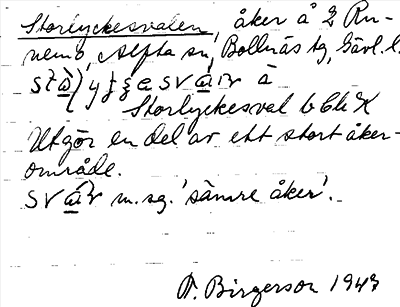 Storlyckesvalen, åker å 2 Ru-
nemo, Alfta sn, Bollnäs tg, Gävl. l.
å
Storlyckesval b Ch K
Utgör en del av ett stort åker-
område.
m. sg. 'sämre åker'.
F. Birgerson 1943